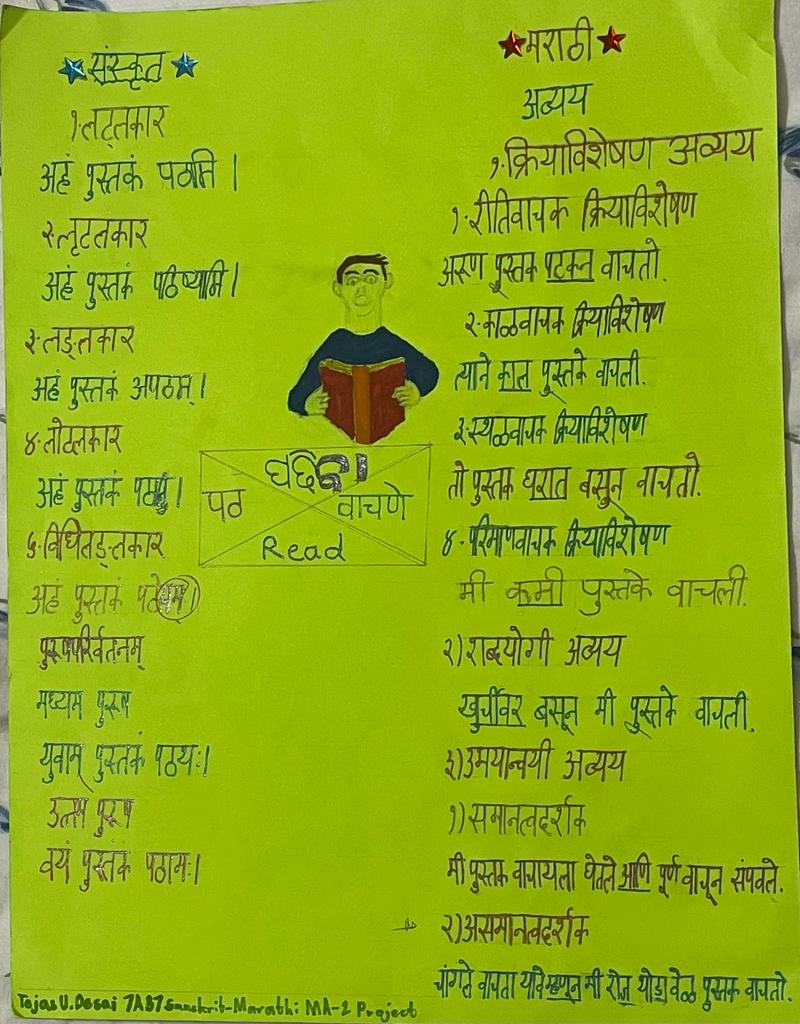 संस्कृत
१.लट्लकार
अहं पुस्तकं पठामि ।
२.लृटलकार
अहं पुस्तकं पठिष्यामि ।
३.लङ्लकार
अहं पुस्तकं अपठम् ।
४.लोटलकार
अहं पुस्तकं
५.विधिलिङ्लकार
अहं पुस्तकं पठेयम् ।
पुरूषपरिर्वतनम्
मध्यम पुरूष
युवाम् पुस्तकं पठथः ।
उत्तम पुरूष
वयं पुस्तकं पठामः ।
पठ
वाचणे
Read
मराठी
अव्यय
१.क्रियाविशेषण अव्यय
१.रीतिवाचक क्रियाविशेषण
अरुण पुस्तक पटकन वाचतो.
२.काळवाचक क्रियाविशेषण
त्याने काल पुस्तके वाचली.
३.स्थळवाचक क्रियाविशेषण
तो पुस्तक घरात बसून वाचतो.
४.परिमाणवाचक क्रियाविशेषण
मी कमी पुस्तके वाचली.
२)शब्दयोगी अव्यय
खुर्चीवर बसून मी पुस्तके वाचली.
३)उभयान्वयी अव्यय
१)समानत्वदर्शक
मी पुस्तक वाचायला घेतले आणि पूर्ण वाचून संपवले.
२)असमानत्वदर्शक
चांगले वाचता यावे म्हणून मी रोज थोडा वेळ पुस्तक वाचतो.
Tejas U. Desai 7A37 Sanskrit-Marathi MA-2 Project